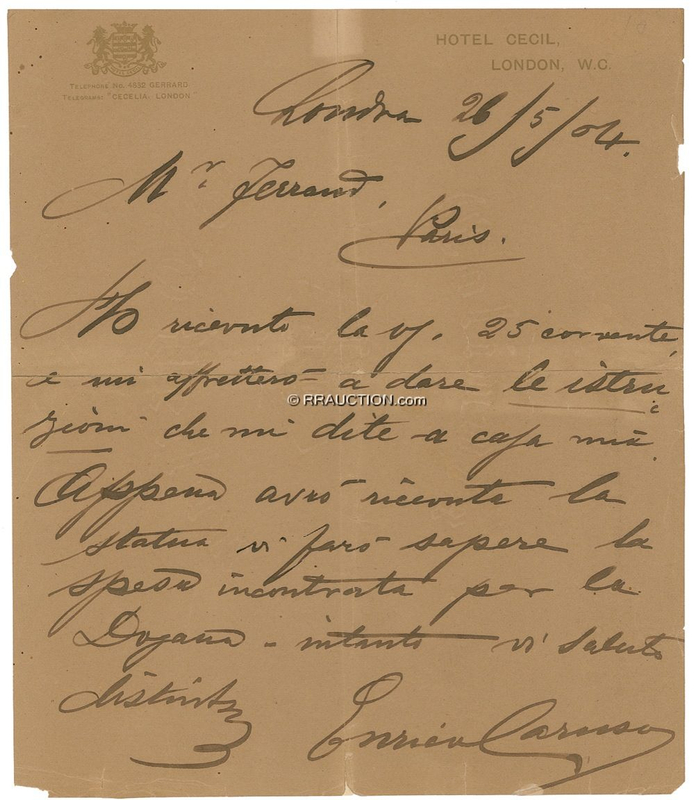 HOTEL CECIL,
LONDON, W.C.
TELEPHONE No. 4632 GERRARD
TELEGRAMS "CECELIA, LONDON"
Londra 26/5/04.
Mr Ferrand,
Paris.
Ho ricevuto la vs. 25 corrente,
e mi affretterò a dare le istru
zioni che mi dite a casa mia.
© RRAUCTION.com
Appena avrò ricevuta la
statua vi farò sapere la
spesa incontrata per la
Dogana - intanto vi saluto
distint
Enrico Caruso